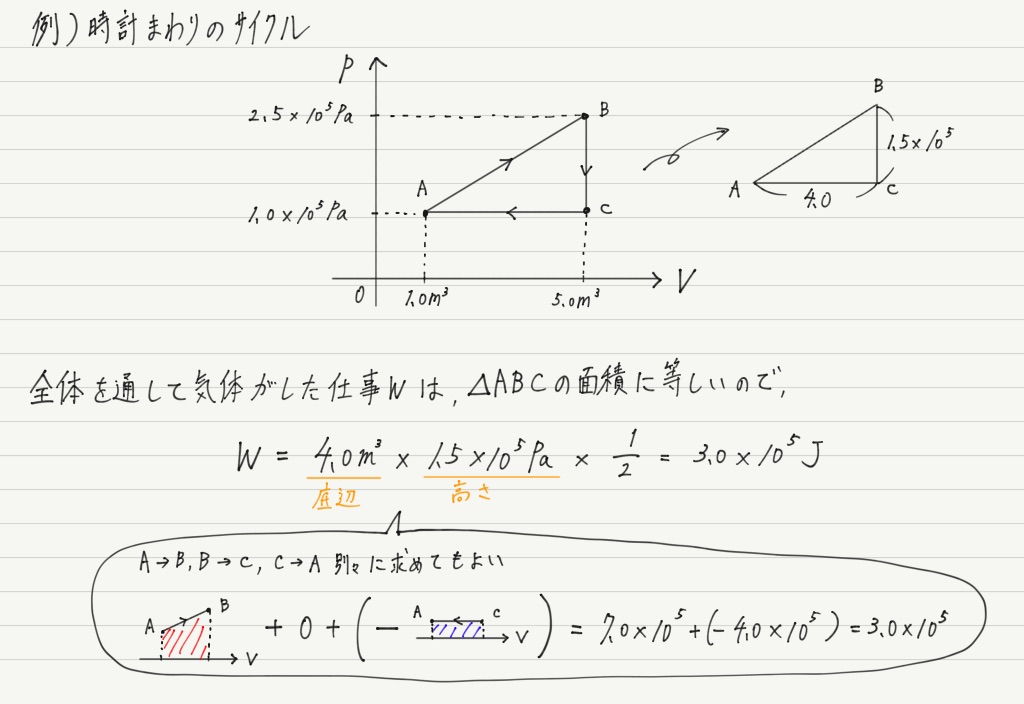 例)時計まわりのサイクル
P
2.5×10⁵Pa
B
A
1.0×10⁵Pa
C
O
1.0m³
5.0m³
V
B
1.5×10⁵
A
4.0
C
全体を通して気体がした仕事Wは,△ABCの面積に等しいので,
W = 4.0m³ × 1.5×10⁵Pa × 1/2 = 3.0×10⁵J
底辺 高さ
A→B,B→C,C→A 別々に求めてもよい
A B V + 0 + (- A C V) = 7.0×10⁵+(-4.0×10⁵)=3.0×10⁵